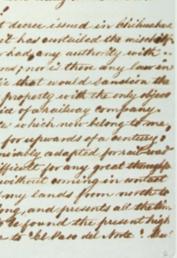 decree issued in Chihuahua
it has curtailed the mischief
had, any authority with
is there any law in
that would sanction the
property with the only object
of a railway company
which now belong to me,
for upwards of a century?
adapted for rail road
difficult for any great
without coming in contact
my lands from north to
long, and presents all the
found the present high
to "El Paso del Norte".